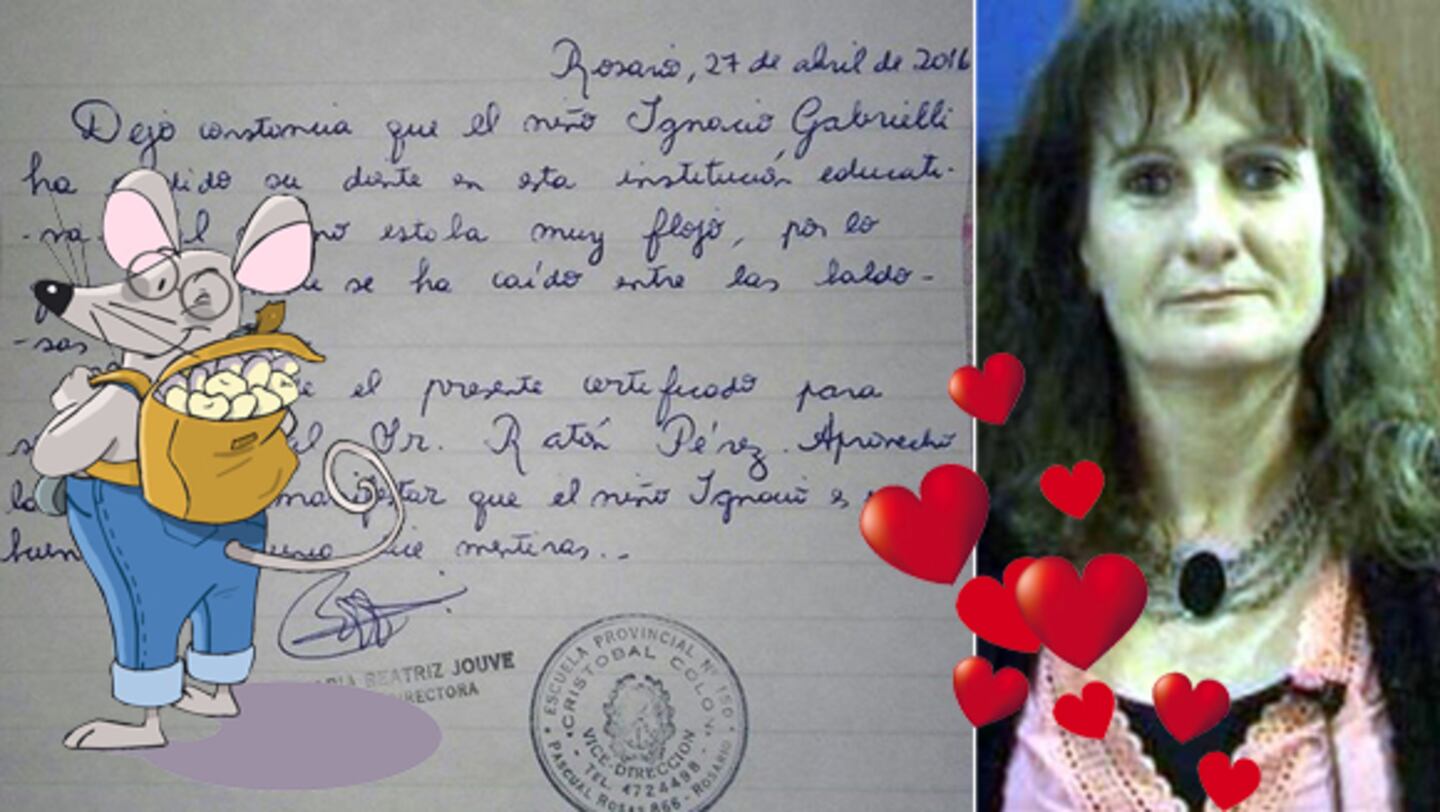 Rosario, 27 de abril de 2016
Dejo constancia que el niño Ignacio Gabrielli
ha su diente en esta institución educati-
-va estaba muy flojo, por lo
se ha caído entre las baldo-
-sas
el presente certificado para
al Sr. Ratón Pérez. Aprovecho
que el niño Ignacio es
mentiras..
BEATRIZ JOUVE
DIRECTORA
ESCUELA PROVINCIAL Nº 150
"CRISTOBAL COLON"
VICE-DIRECCION
TEL. 4724498
PASCUAL ROSAS 866 - ROSARIO